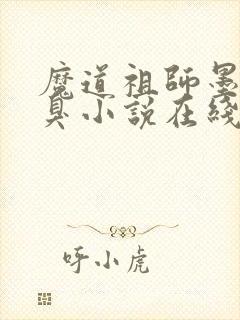 魔道祖師墨
臭小説在綫
呼小虎